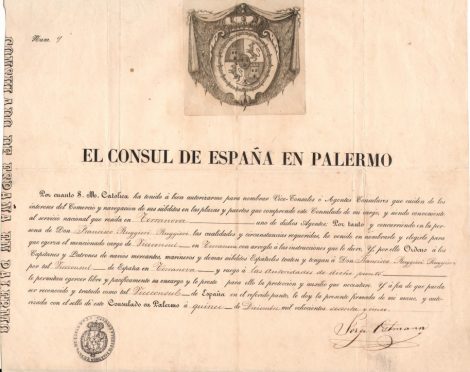 Num. 7
CONSULADO DE ESPAÑA EN PALERMO
EL CONSUL DE ESPAÑA EN PALERMO
Por cuanto S. M. Católica ha tenido á bien autorizarme para nombrar Vice-Consules o Agentes Consulares que cuiden de los
intereses del Comercio y navegacion de sus súbditos en las plazas y puertos que comprende este Consulado de mi cargo, y siendo conveniente
al servicio nacional que resida en Terranova uno de dichos Agentes. Por tanto y concurriendo en la per-
sona de Don Francisco Ruggieri Ruggieri las cualidades y circunstancias requeridas, he venido en nombrarle y elegirle para
que ejerza el mencionado cargo de Viceconsul en Terranova con arreglo á las instrucciones que le dará. Y por ello Ordeno á los
Capitanes y Patrones de naves mercantes, marineros y demas súbditos Españoles traten y tengan á Don Francisco Ruggieri Ruggieri
por tal Viceconsul de España en Terranova y ruego á las Autoridades de dicho punto
le permitan ejercer libre y pacificamente su encargo y le presten para ello la proteccion y ausilio que necesitare. Y á fin de que pueda
ser reconocido y tratado como tal Viceconsul de España en el referido punto, le doy la presente firmada de mi mano, y autori-
zada con el sello de este Consulado en Palermo á quince de Diciembre mil ochocientos sesenta y